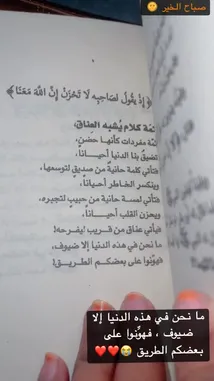 صباح الخير 🌞
﴿ إِذْ يَقُولُ لِصَاحِبِهِ لَا تَحْزَنْ إِنَّ اللَّهَ مَعَنَا ﴾
ثمّة كلام يُشبه العِناق،
ثمّة مفردات كأنها حضن،
تضيق بنا الدنيا أحياناً،
فتأتي كلمة حانية من صديق لتوسعها،
وينكسر الخاطر أحياناً،
فتأتي لمسة حانية من حبيب لتجبره،
ويحزن القلب أحياناً،
فيأتي عناق من قريب ليفرحه!
ما نحن في هذه الدنيا إلا ضيوف،
فهوّنوا على بعضكم الطريق!
ما نحن في هذه الدنيا إلا
ضيوف ، فهوّنوا على
بعضكم الطريق 😭❤️❤️